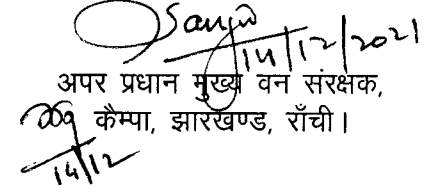 Sanjiv
14/12/2021
अपर प्रधान मुख्य वन संरक्षक,
कैम्पा, झारखण्ड, राँची।
14/12